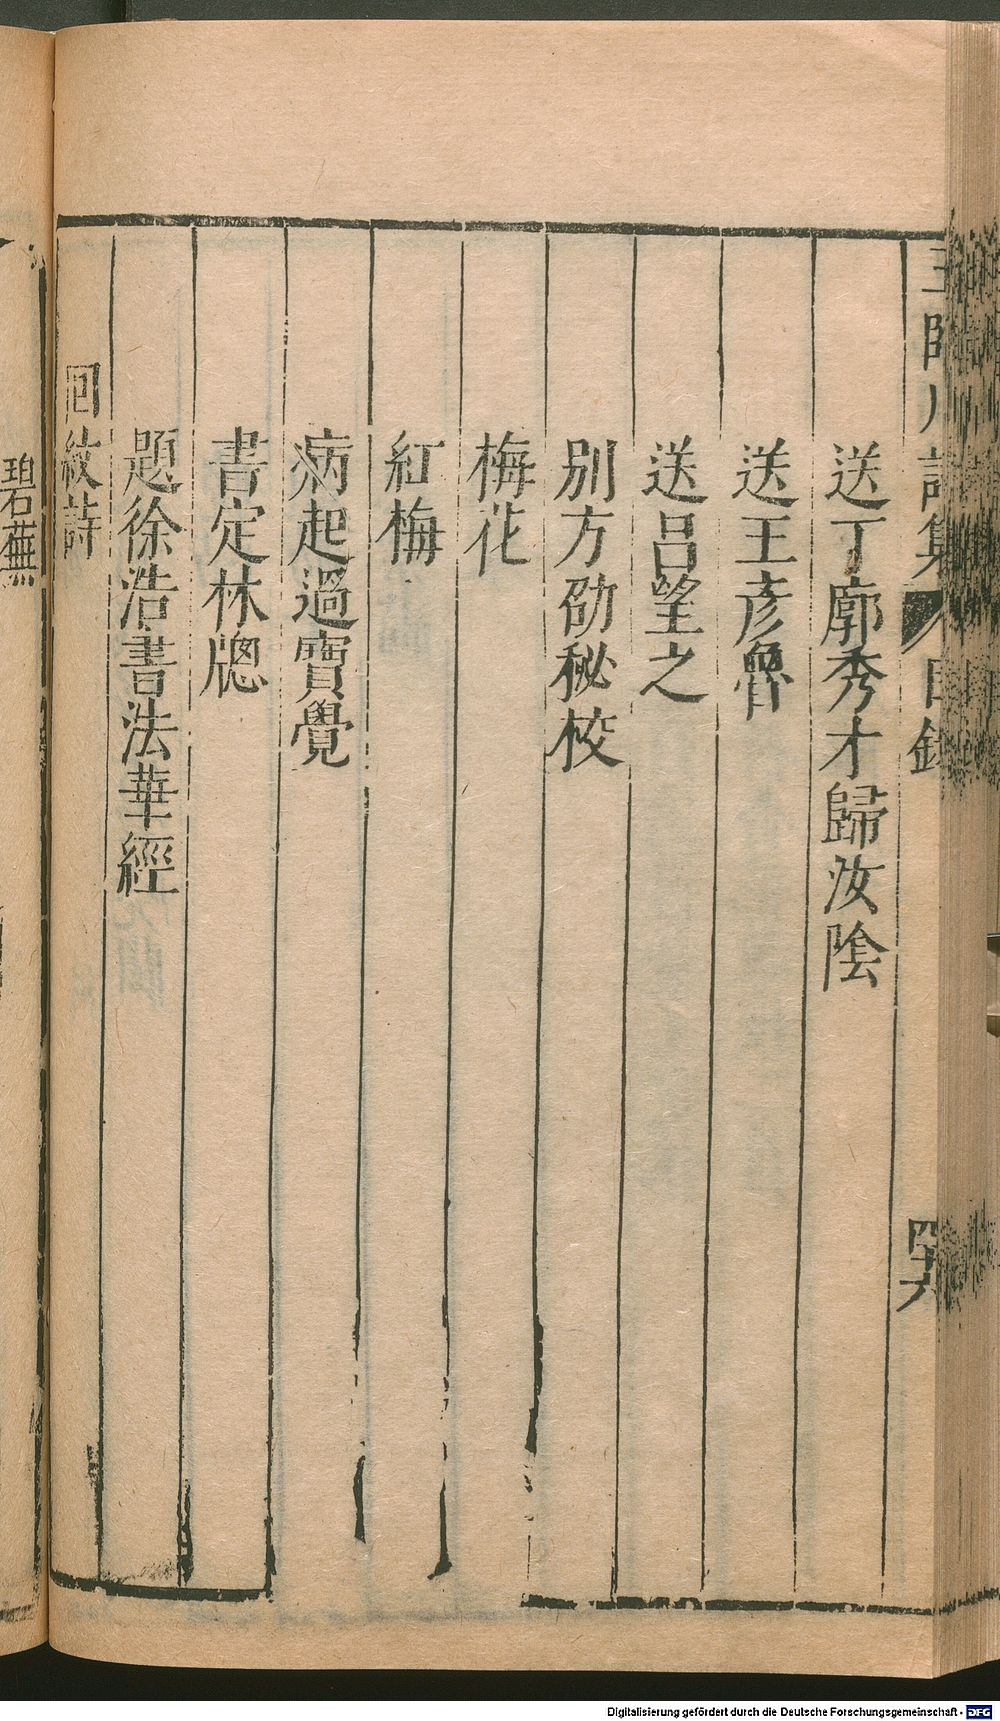 王荊
詩集
目錄
四十六
送丁廓秀才歸汝陰
送王彥魯
送呂望之
別方劭秘校
梅花
紅梅
病起過寶覺
書定林牕
題徐浩書法華經
回紋詩
碧蕪
Digitalisierung gefördert durch die Deutsche Forschungsgemeinschaft - DFG